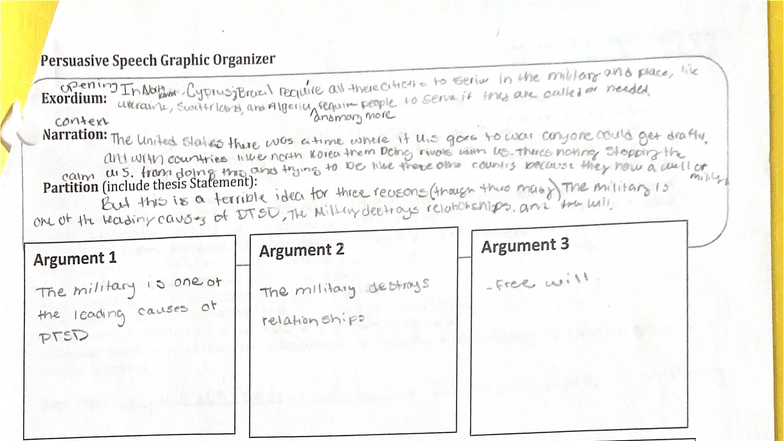 Persuasive Speech Graphic Organizer
opening In North Korea, Cyprus, Brazil require all there citizens to serve in the military and place, like
Exordium: Ukraine, Switzerland, and Algeria, require people to serve if they are called or needed.
and many more
context
Narration: The United States there was a time where if U.S goes to war anyone could get draftu,
and with countries like north Korea them being rivals with us. Theres nothing stopping the
claim U.S. from doing this and trying to be like these other countis because they now a well of military
Partition (include thesis Statement):
But this is a terrible idea for three reasons (though there many) The military is
one of the leading causes of PTSD, The Military destroys relationships, and free will.
Argument 1
The military is one of
the leading causes of
PTSD
Argument 2
The military destroys
relationships
Argument 3
-Free will